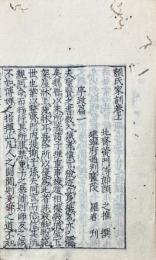 顏氏家訓卷上
北齊黃門侍郎顏之推撰
建寧府通判廬陵羅春刊
序致篇一
夫聖賢之書教人誠孝慎言檢迹立身揚名亦已備
矣魏晉已來所著諸子理重事複遞相模斆猶屋下
架屋牀上施牀耳吾今所以復為此者非敢軌物範
世也業以整齊門內提撕子孫夫同言而信信其所
親同命而行行其所服禁童子之暴謔則師友之誡
不如傅婢之指揮止凡人之鬬鬩則堯舜之道不